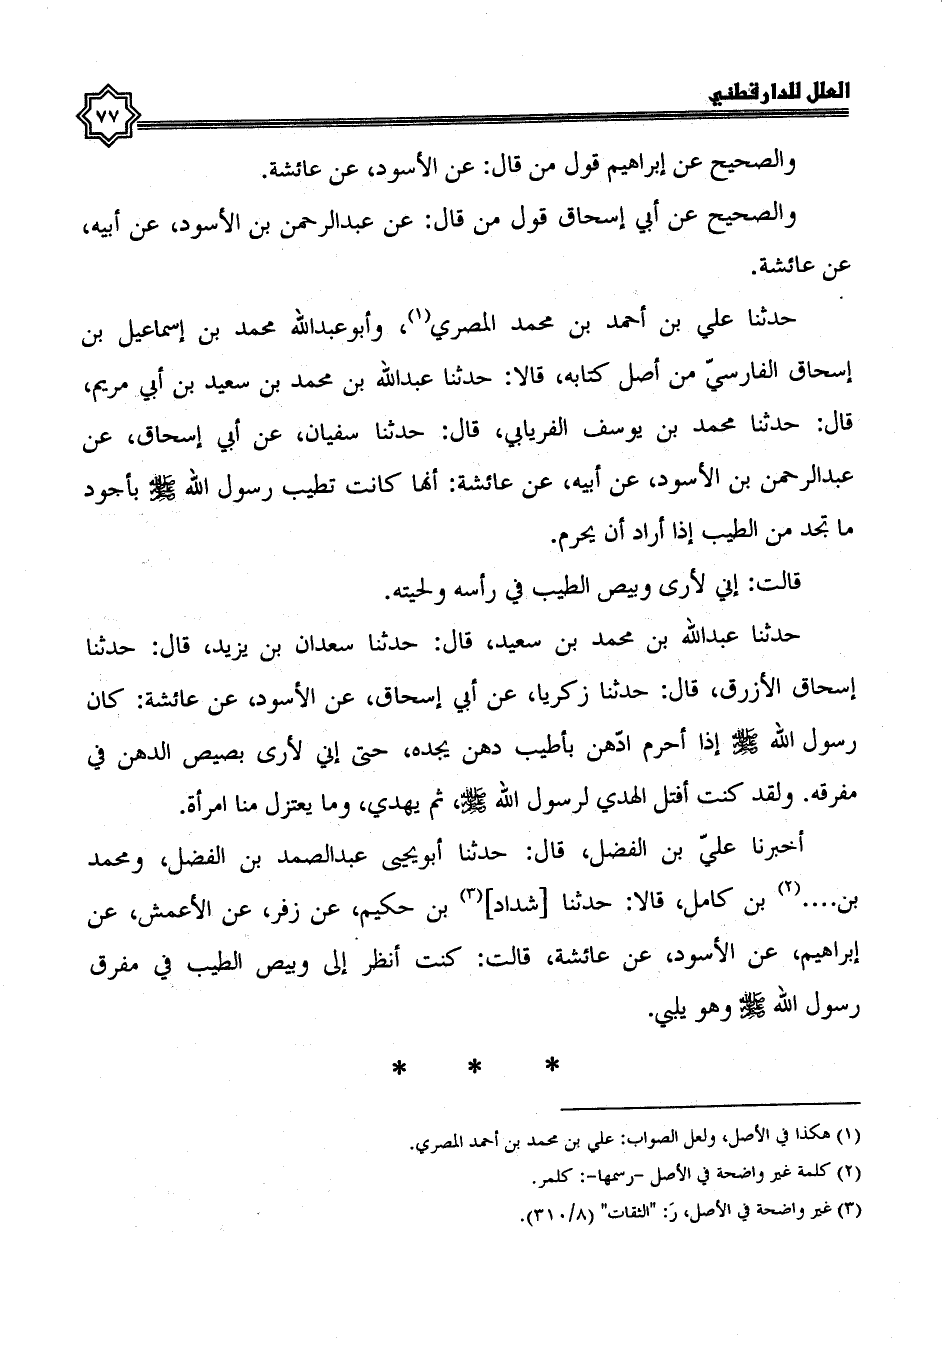 العلل للدارقطني
٧٧
والصحيح عن إبراهيم قول من قال: عن الأسود، عن عائشة.
والصحيح عن أبي إسحاق قول من قال: عن عبدالرحمن بن الأسود، عن أبيه،
عن عائشة.
حدثنا علي بن أحمد بن محمد المصري(١)، وأبوعبدالله محمد بن إسماعيل بن
إسحاق الفارسيّ من أصل كتابه، قالا: حدثنا عبدالله بن محمد بن سعيد بن أبي مريم،
قال: حدثنا محمد بن يوسف الفريابي، قال: حدثنا سفيان، عن أبي إسحاق، عن
عبدالرحمن بن الأسود، عن أبيه، عن عائشة: أنها كانت تطيب رسول الله ﷺ بأجود
ما تجد من الطيب إذا أراد أن يحرم.
قالت: إني لأرى وبيص الطيب في رأسه ولحيته.
حدثنا عبدالله بن محمد بن سعيد، قال: حدثنا سعدان بن يزيد، قال: حدثنا
إسحاق الأزرق، قال: حدثنا زكريا، عن أبي إسحاق، عن الأسود، عن عائشة: كان
رسول الله ﷺ إذا أحرم ادّهن بأطيب دهن يجده، حتى إني لأرى بصيص الدهن في
مفرقه. ولقد كنت أفتل الهدي لرسول الله ﷺ، ثم يهدي، وما يعتزل منا امرأة.
أخبرنا عليّ بن الفضل، قال: حدثنا أبويحيى عبدالصمد بن الفضل، ومحمد
بن....(٢) بن كامل، قالا: حدثنا [شداد](٣) بن حكيم، عن زفر، عن الأعمش، عن
إبراهيم، عن الأسود، عن عائشة، قالت: كنت أنظر إلى وبيص الطيب في مفرق
رسول الله ﷺ وهو يلبي.
* * *
(١) هكذا في الأصل، ولعل الصواب: علي بن محمد بن أحمد المصري.
(٢) كلمة غير واضحة في الأصل -رسمها-: كلمر.
(٣) غير واضحة في الأصل، رَ: "الثقات" (٣١٠/٨).